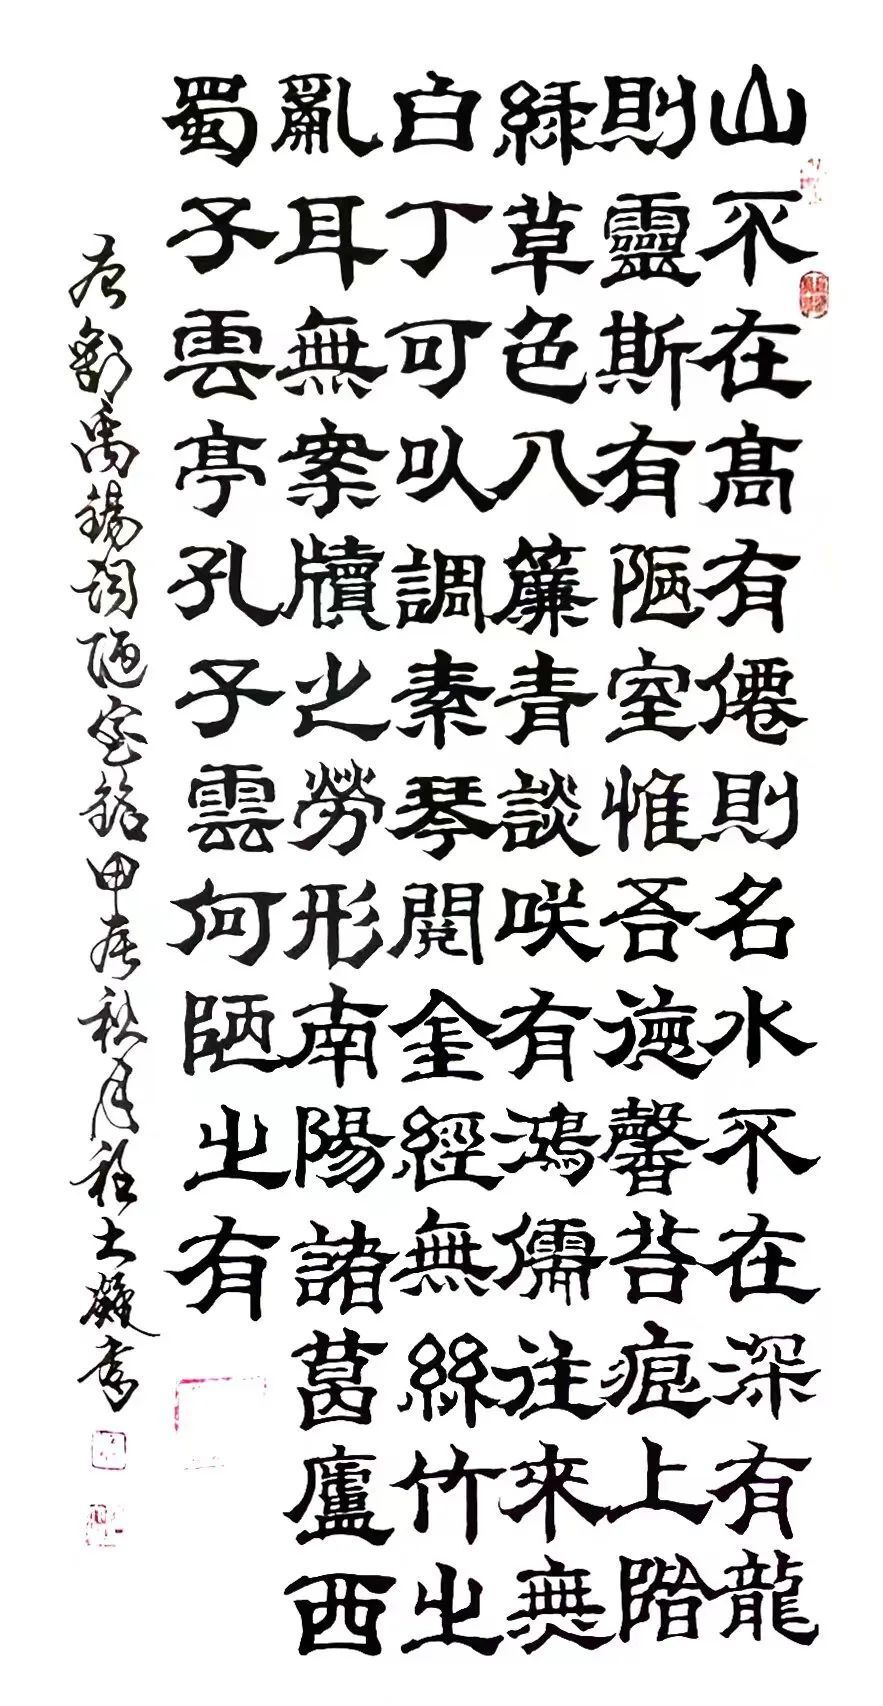 山不在高有僊則名水不在深有龍
則靈斯有陋室惟吾德馨苔痕上階
綠草色入簾青談咲有鴻儒往來無
白丁可以調素琴閱金經無絲竹之
亂耳無案牘之勞形南陽諸葛廬西
蜀子雲亭孔子雲何陋之有
唐劉禹錫詞陋室銘甲辰秋月程大書